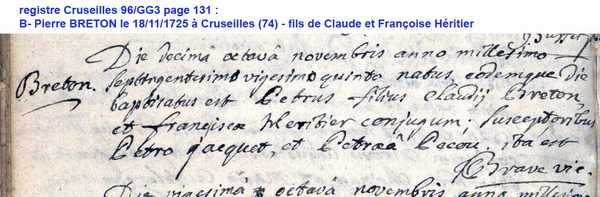 registre Cruseilles 96/GG3 page 131 :
B- Pierre BRETON le 18/11/1725 à Cruseilles (74) - fils de Claude et Françoise Héritier
Die decimâ octavâ novembris anno millesimo
Breton. septingentesimo vigesimo quinto natus, eodemque die
baptisatus est Petrus filius Claudii Breton,
et franciscæ Heritier conjugum; susceptoribus
Petro jacquet, et Petraâ Pecou. ita est
Brave vic.
Die vigesimâ octavâ novembris anno millesimo